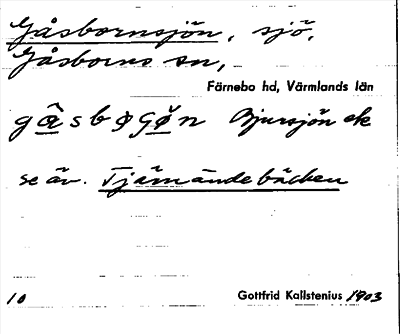 Gåsbornsjön, sjö,
Gåsborns sn,
Färnebo hd, Värmlands län
Bjursjön ek
se äv. Tjärnändebäcken
10 Gottfrid Kallstenius 1903